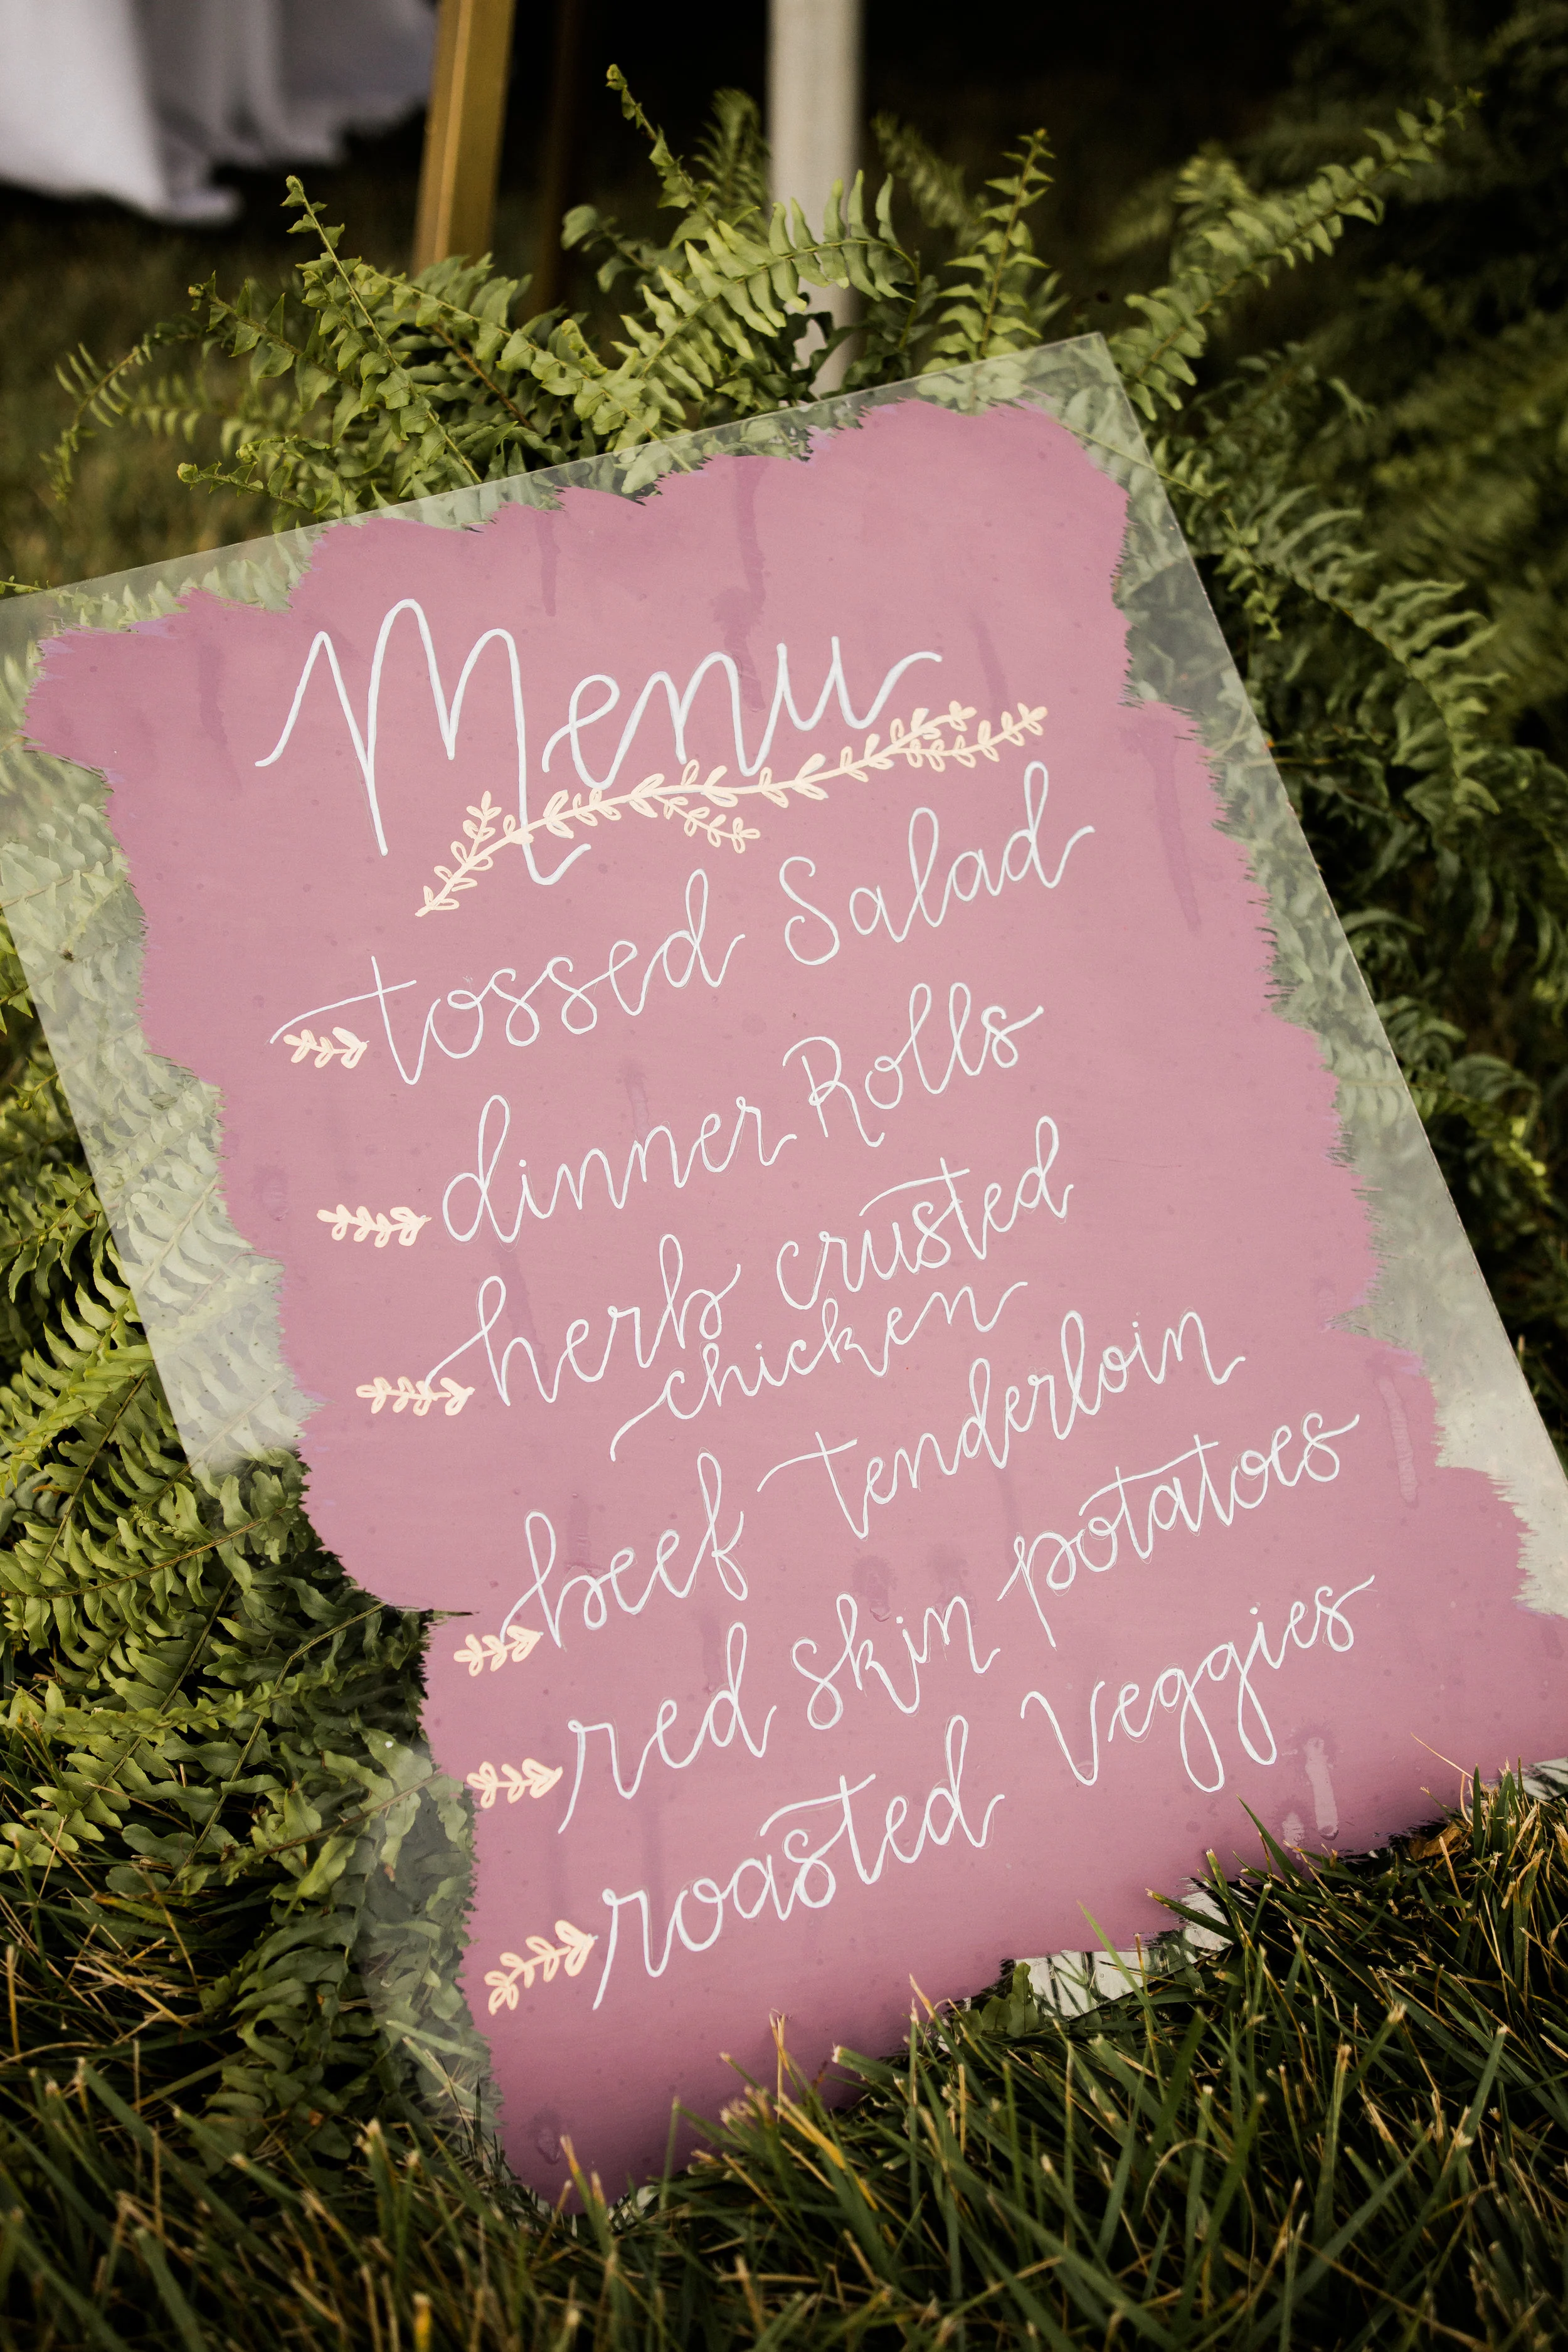 Menu
tossed Salad
dinner Rolls
herb crusted
chicken
beef tenderloin
red skin potatoes
roasted Veggies